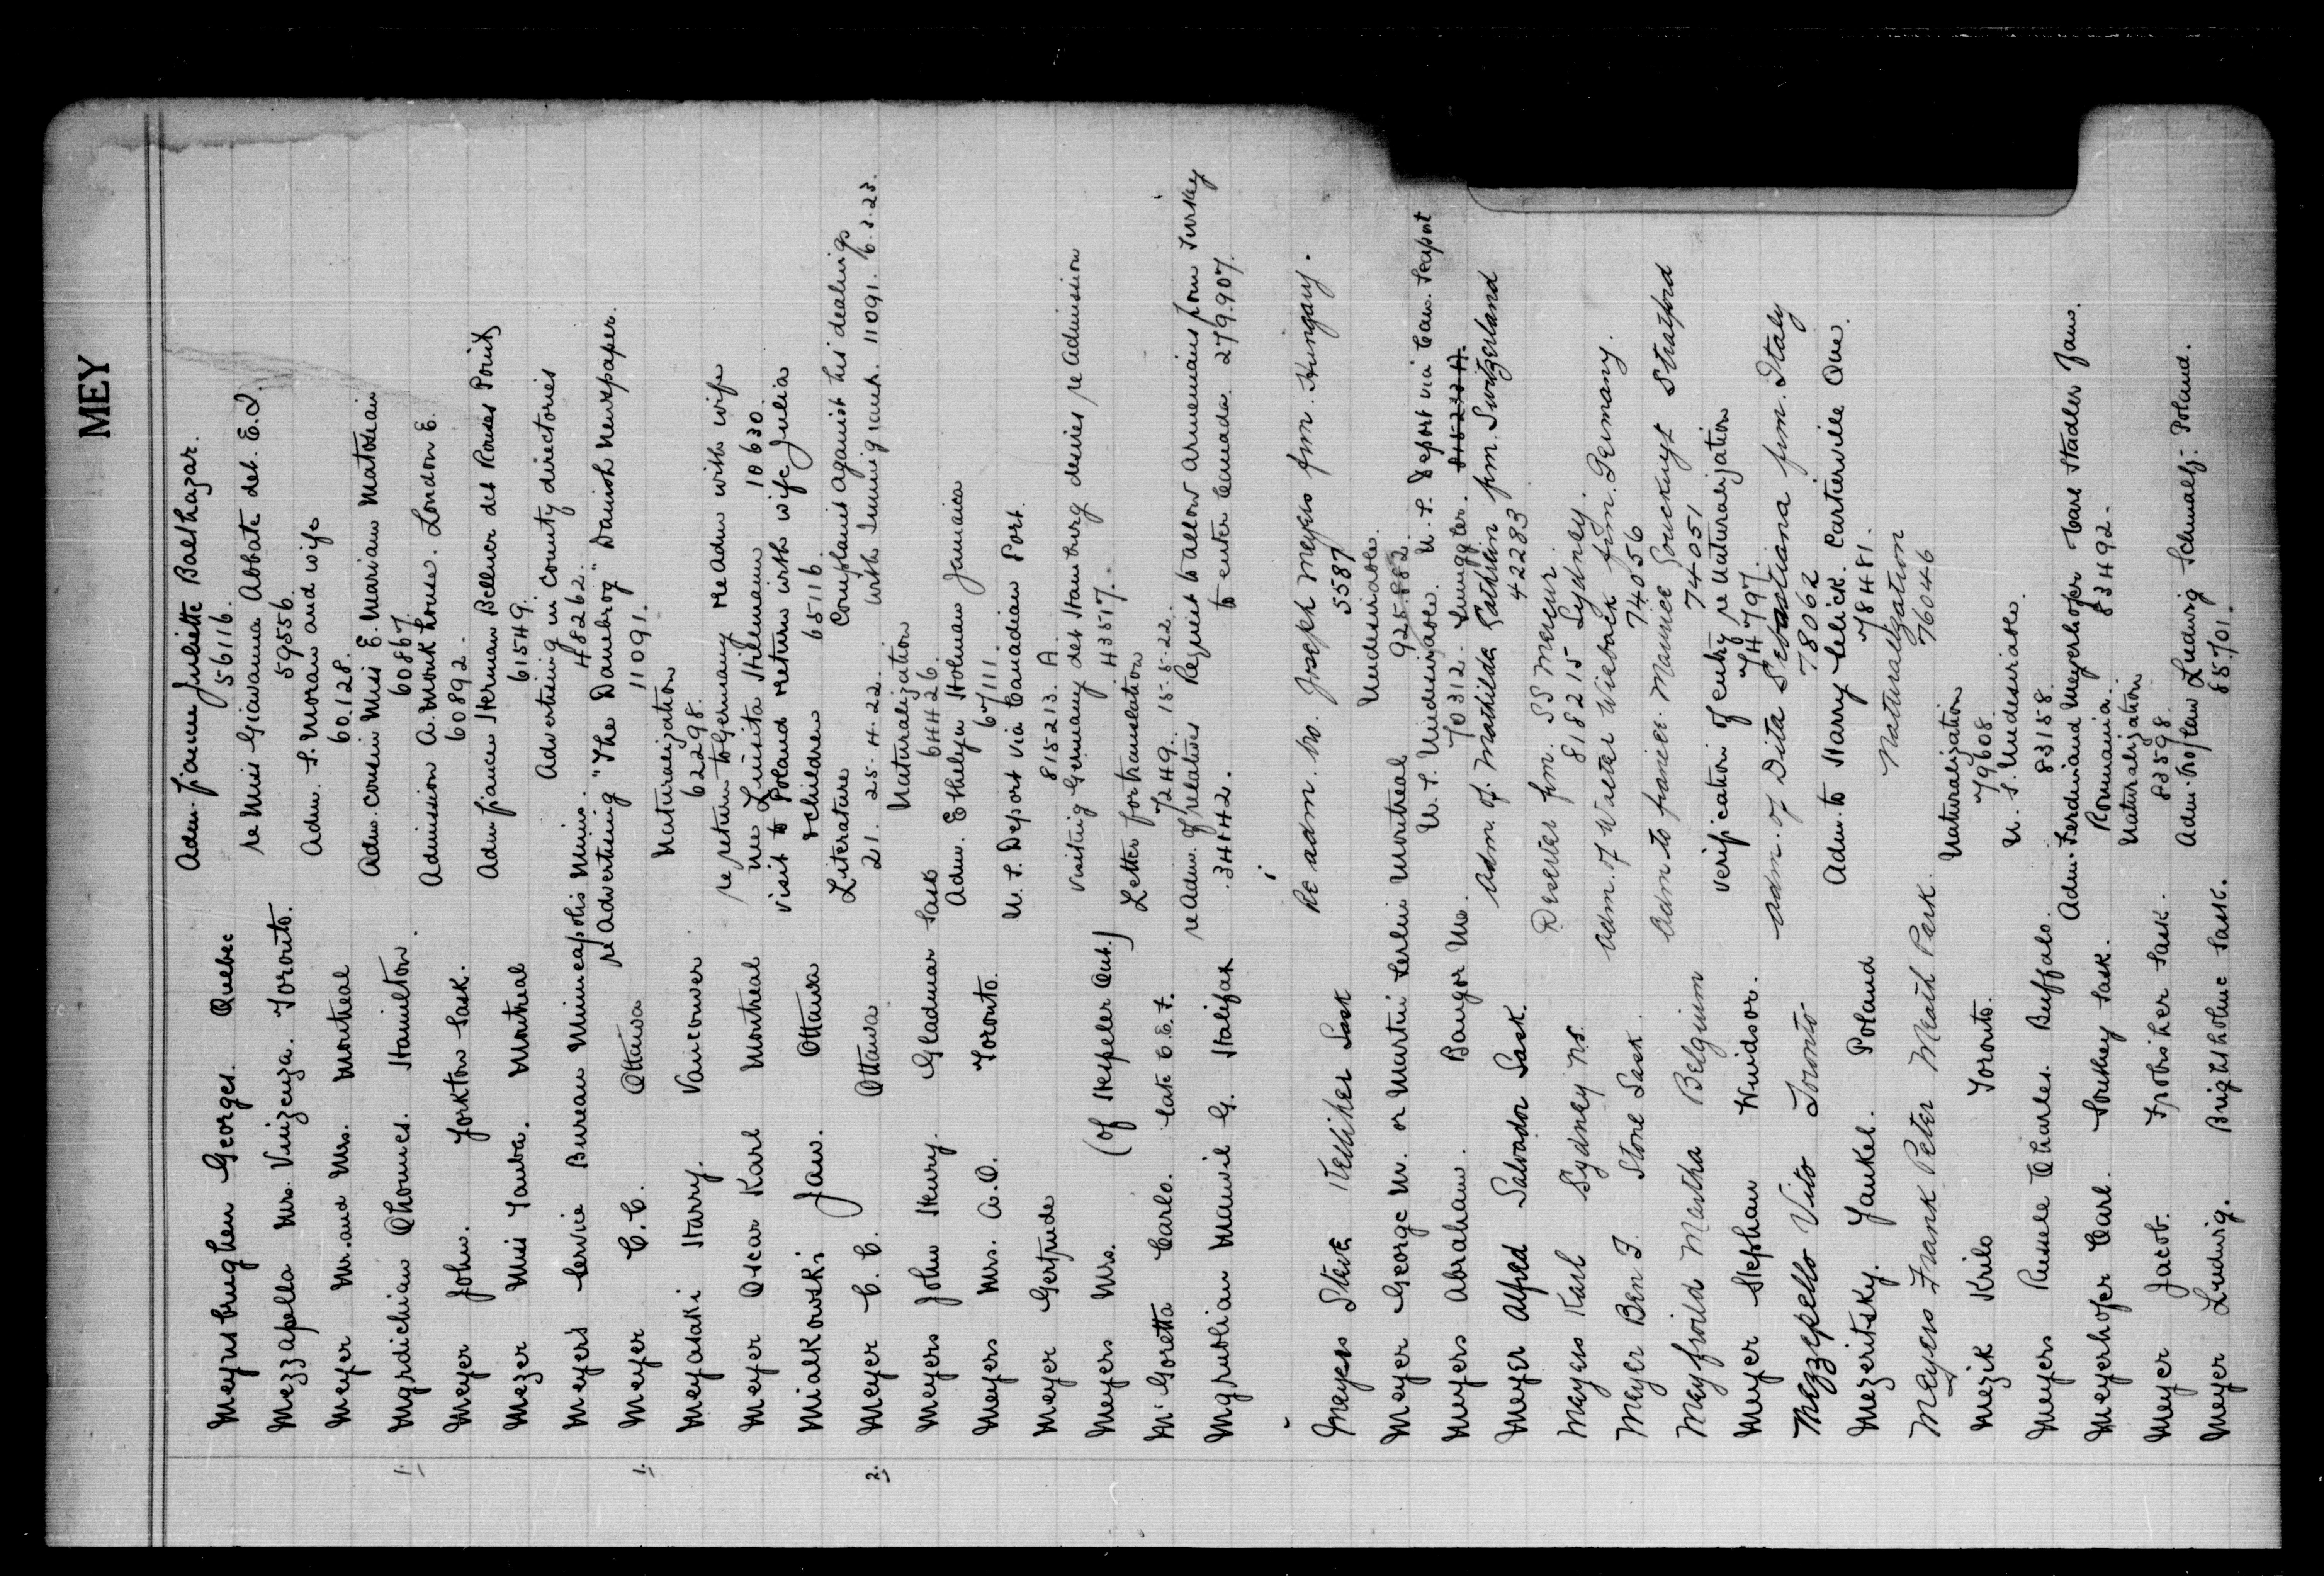 MEY
Meynsbrughen Georges. Quebec Adm. fiancee Juliette Balthazar.
56116.
Mezzapella Mrs. Vinzenza. Toronto. re Miss Giovanna Abbate det. E.I.
59556.
Meyer Mr. and Mrs. Montreal Adm. S. Moran and wife
60128.
1. Mgrdichian Ohannes. Hamilton. Adm. cousin Miss E. Mariam Matosian
60867.
Meyer John. Yorkton Sask. Admission A. Monkhouse. London E.
60892.
Mezer Miss Tauba. Montreal Adm fiance Herman Bellner det Rouses Point
61549.
Meyers Service Bureau Minneapolis Minn. Advertising in County directories
48262.
1. Meyer C.C. Ottawa re Advertising "The Danebrog" Danish Newspaper.
11091.
Meyasaki Harry. Vancouver. Naturalization
62298.
Meyer Oscar Karl Montreal re return to Germany re Adm with wife
nee Luisita Hilemann 10630.
Mialkowski Jan. Ottawa visit to Poland return with wife Julia
& children 65116.
2. Meyer C. C. Ottawa Literature Complaint against his dealings
21. 25.4.22. with Immigrant. 11091. 6.3.23.
Meyers John Henry. Gladmar Sask Naturalization
64426.
Meyers Mrs. A.O. Toronto. Adm. Ethelyn Holman Jamaica
67111.
Meyer Gertrude U.S. Deport via Canadian Port.
815213. A.
Meyers Mrs. (of Hespeler Ont.) visiting Germany det Hamburg desires re Admission
43517.
McGoretta Carlo. late C.E.F. Letter for translation
7249. 15.5.22.
Mgrublian Manvil G. Halifax re Adm. of relatives Request to allow Armenians from Turkey
34142. to enter Canada. 279.907.
Meyers Steve Kelliher Sask Re adm. bro. Joseph Meyers frm. Hungary.
5587
Meyer George W. or Martin Leslie Montreal Undesirable.
925.882.
Meyers Abraham. Bangor Me. U.S. Undesirable. U.S. Deport via Can. Seaport
70312. Smuggler. 815232 A.
Meyer Alfred Salvador Sask. Adm. of Mathilda Gathlin frm. Switzerland
42283
Meyers Karl Sydney N.S. Deserter frm. SS Mercur.
818215 Sydney.
Meyer Ben F. Stone Sask. Adm. of Walter Wieback frm. Germany.
74056
Meyfroild Martha Belgium Adm to fiancee. Maurice Gouckuyt Stratford
74051
Meyer Stephan Windsor. verification of entry re Naturalization
74797.
Mezzepello Vito Toronto Adm. of Dita Sebastiana frm. Italy
78062
Mezeritsky. Yankel. Poland Adm. to Harry Selick. Cartierville Que.
78481.
Meyers Frank Peter Meath Park. Naturalization
76046
Mezik Krilo Toronto. Naturalization
79608
Meyers Russell Charles. Buffalo. U.S. Undesirable.
83158.
Meyerhofer Carl. Southey Sask. Adm. Ferdinand Meyerhofer Carl Stadler Jans.
Roumania. 83492.
Meyer Jacob. Frobisher Sask. Naturalization
83598.
Meyer Ludwig. Brightholme Sask. Adm. bro/law Ludwig Schmalz. Poland.
85701.